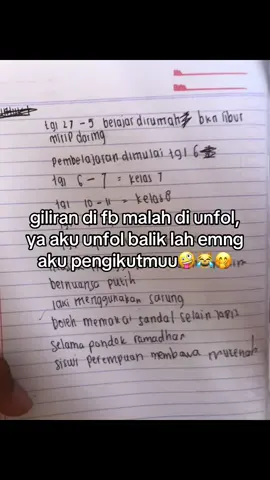 tgl 27 - 5 belajar dirumah bkn libur
mirip daring
pembelajaran dimulai tgl 6
tgl 6 - 7 = kelas 7
tgl 10 - 11 = kelas 8
giliran di fb malah di unfol,
ya aku unfol balik lah emng
aku pengikutmuu🤪😂🤭
bernuansa putih
laki menggunakan sarung
boleh memakai sandal selain
selama pondok ramadhan
siswi perempuan membawa mukenah